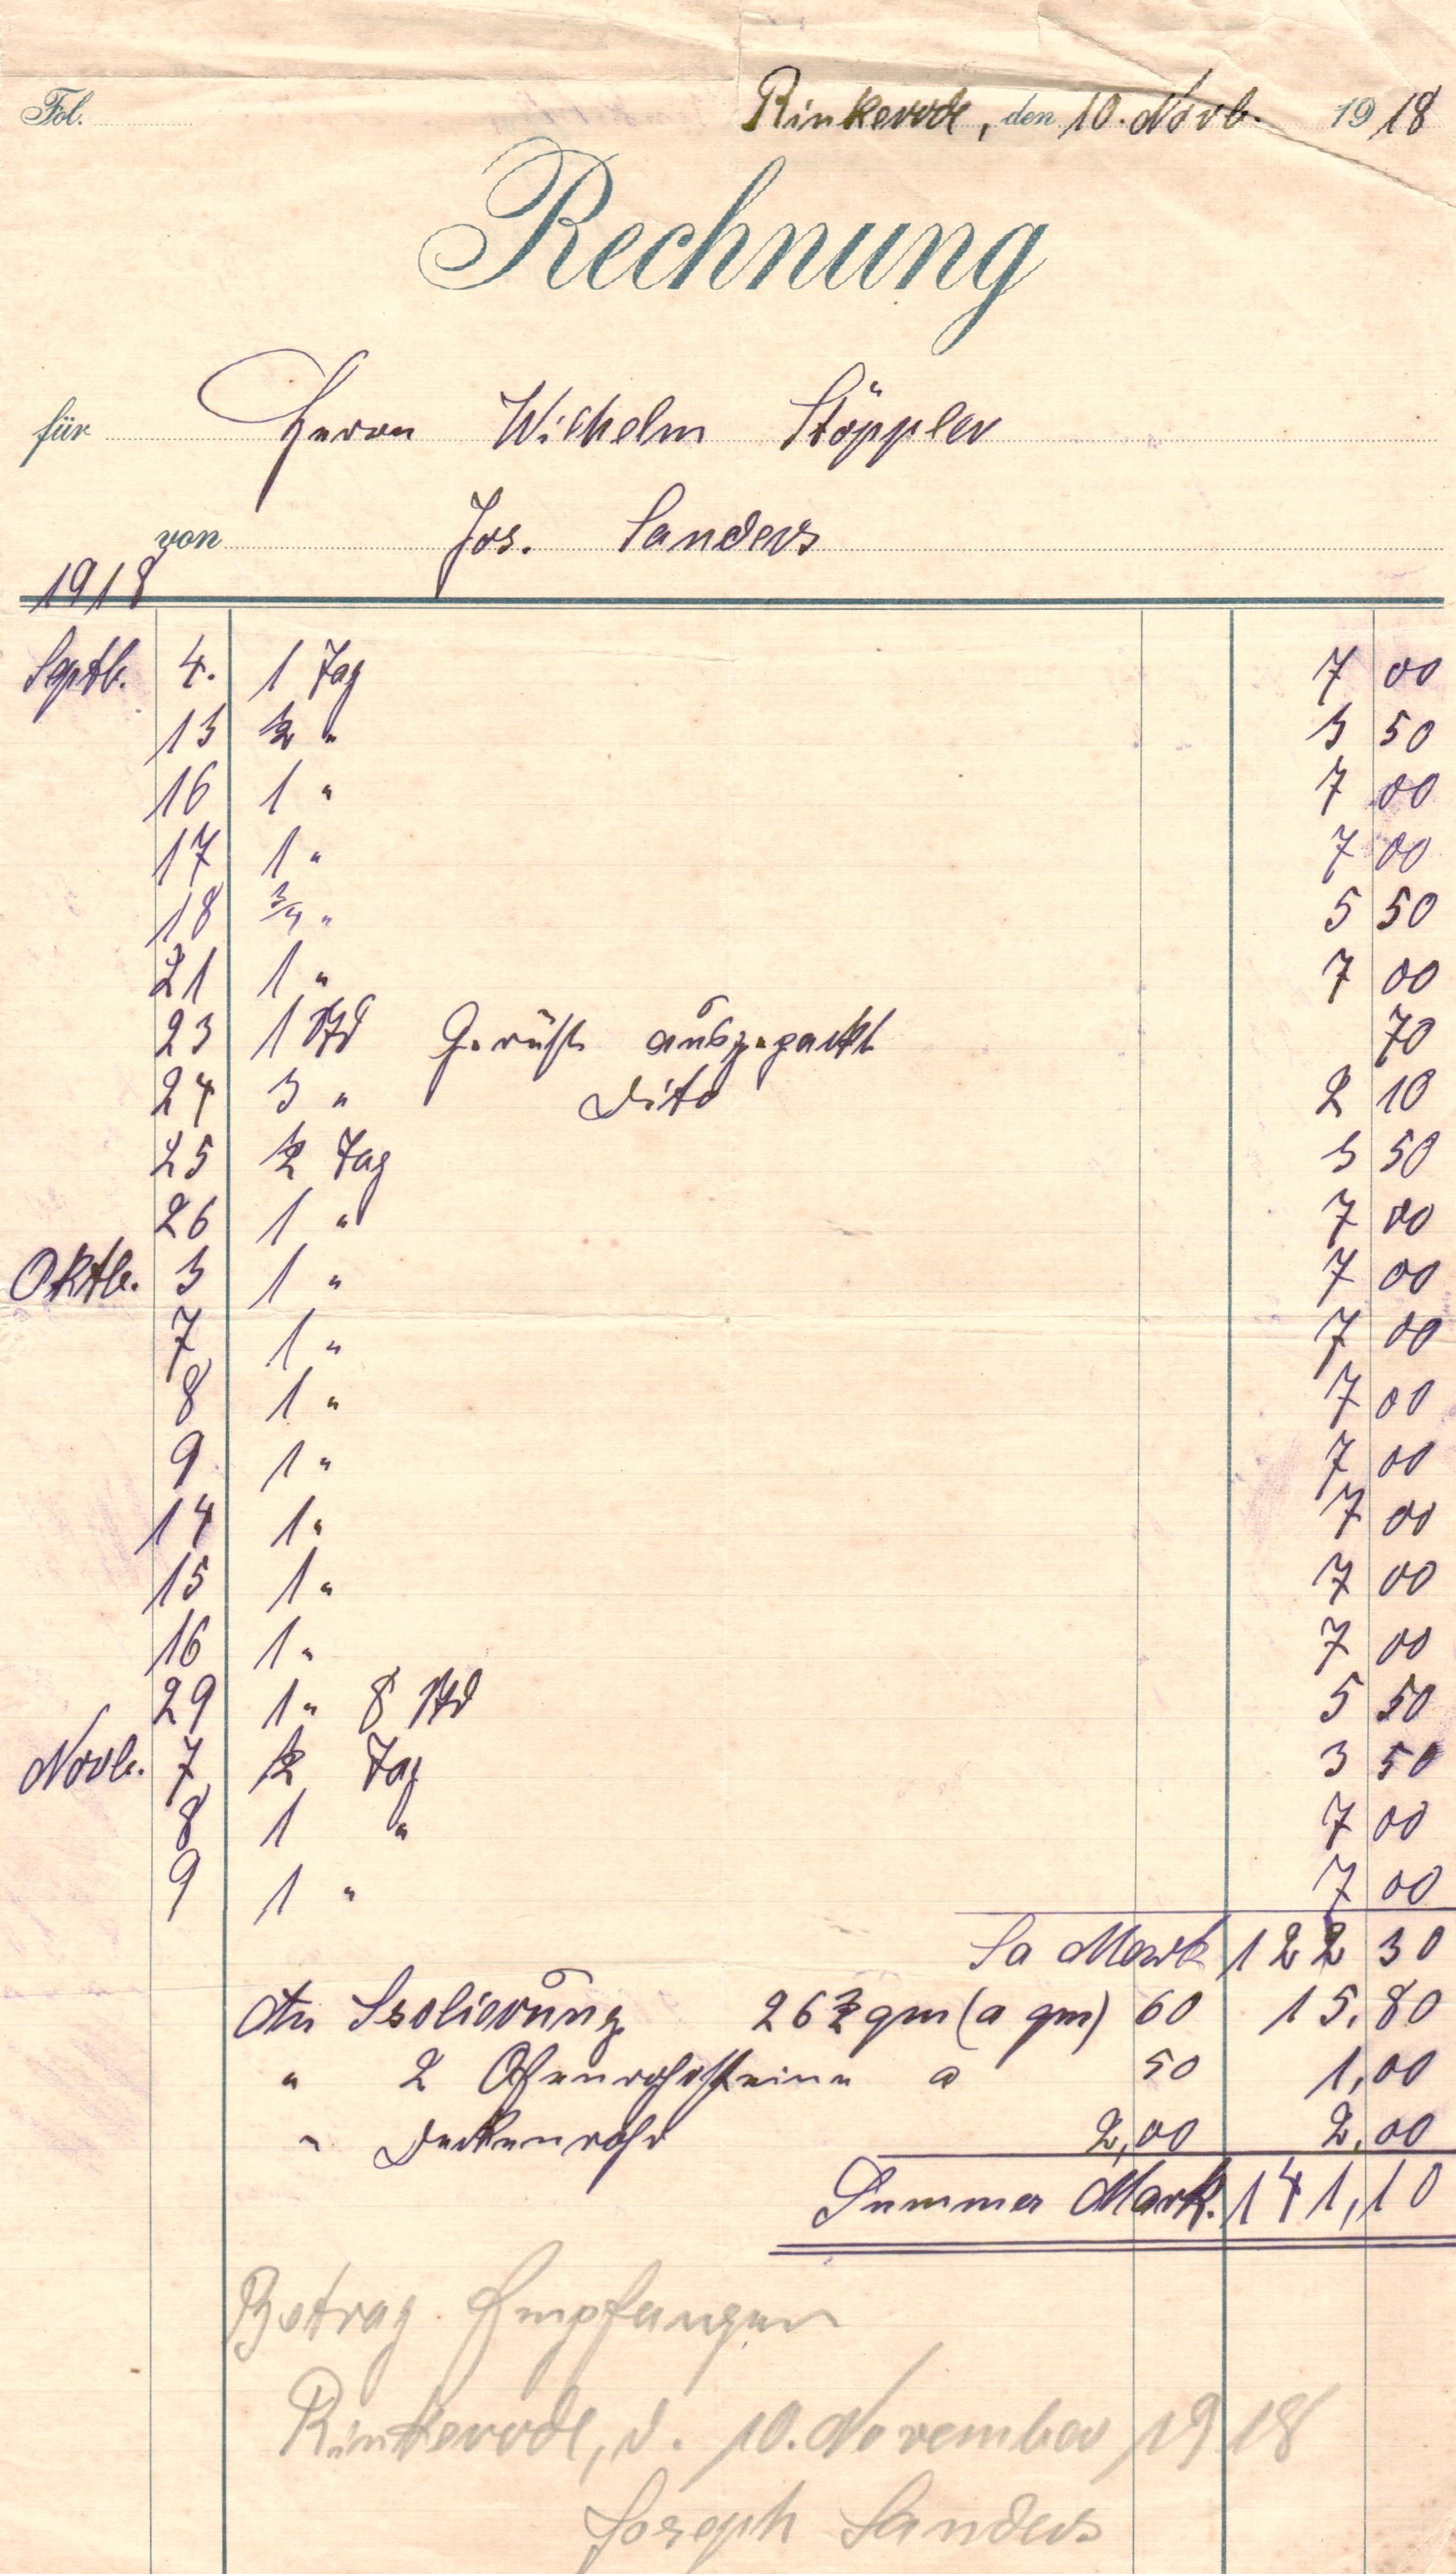 Fol. Rinkerode, den 10. Novb. 1918
Rechnung
für Herrn Wilhelm Stöppler
von Jos. Sanders
1918
Septb. 4. 1 Tag 7 00
13 ½ " 3 50
16 1 " 7 00
17 1 " 7 00
18 3/4 " 5 50
21 1 " 7 00
23 1 Std Gerüst ausgepackt 70
24 3 " Dito 2 10
25 ½ Tag 3 50
26 1 " 7 00
Oktb. 3 1 " 7 00
7 1 " 7 00
8 1 " 7 00
9 1 " 7 00
14 1 " 7 00
15 1 " 7 00
16 1 " 7 00
29 1 " 8 Std 5 50
Novb. 7 ½ Tag 3 50
8 1 " 7 00
9 1 " 7 00
Sa Mark 122 30
An Isolierung 26 qm (a qm) 60 15,80
" 2 Ofenrohrsteine a 50 1,00
" Deckenrohr 2,00 2,00
Summa Mark. 141,10
Betrag Empfangen
Rinkerode, d. 10. November 1918
Joseph Sanders